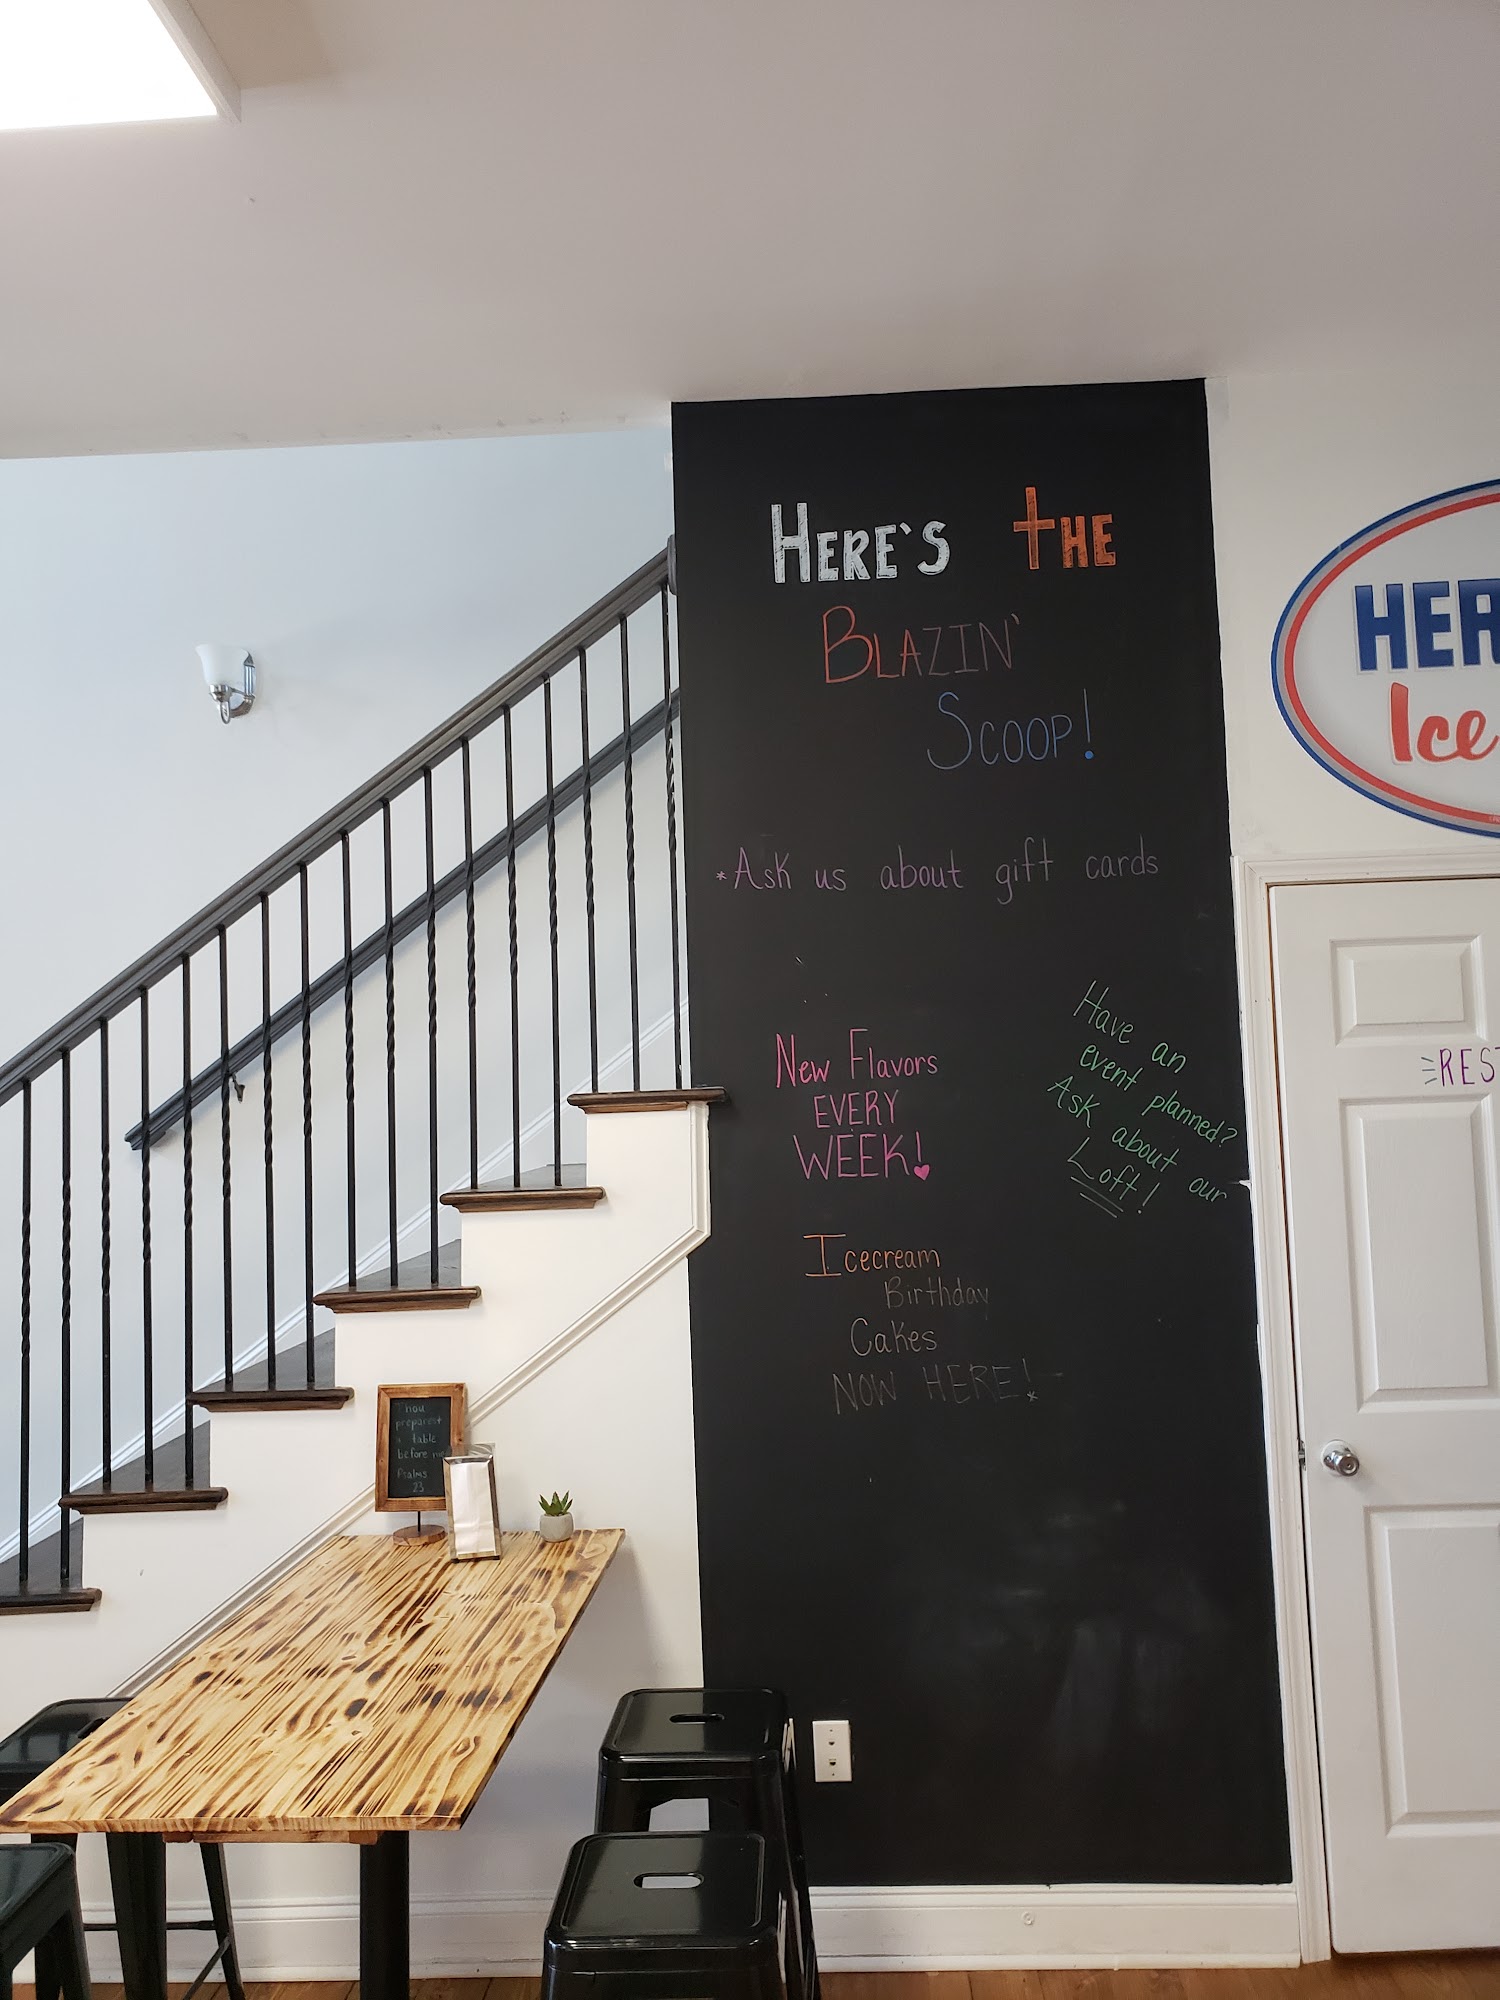 HERE'S THE
BLAZIN'
SCOOP!
*Ask us about gift cards
New Flavors
EVERY
WEEK!
Have an
event planned?
Ask about our
Loft!
Icecream
Birthday
Cakes
NOW HERE!*
HER
Ice
REST
Thou
preparest
a table
before me
Psalms
23